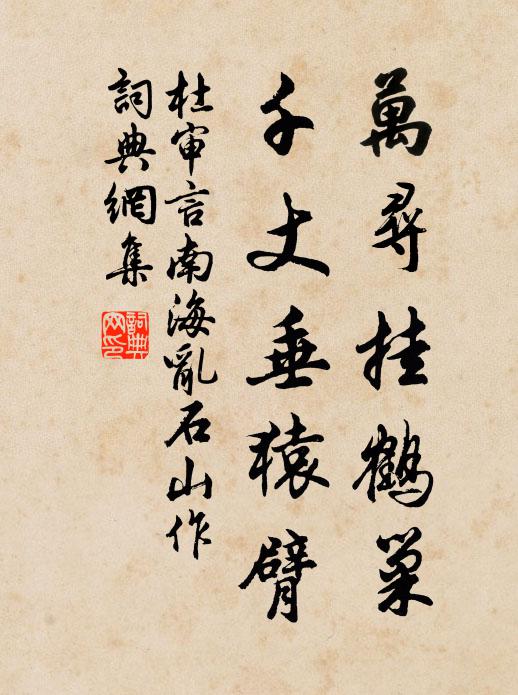 萬尋挂鶴巢
千丈垂猿臂
杜审言南海亂石山作
詞典網集
詞典
网印